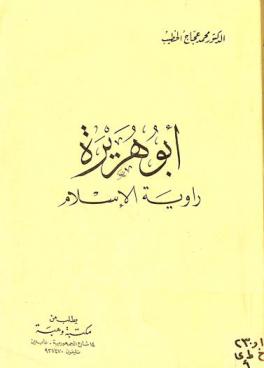 الدكتور محمد عجاج الخطيب
أبو هريرة
راوية الإسلام
يطلب من
مكتبة وهبة
١٤ شارع الجمهورية - عابدين
تليفون ٩٣٧٤٧٠